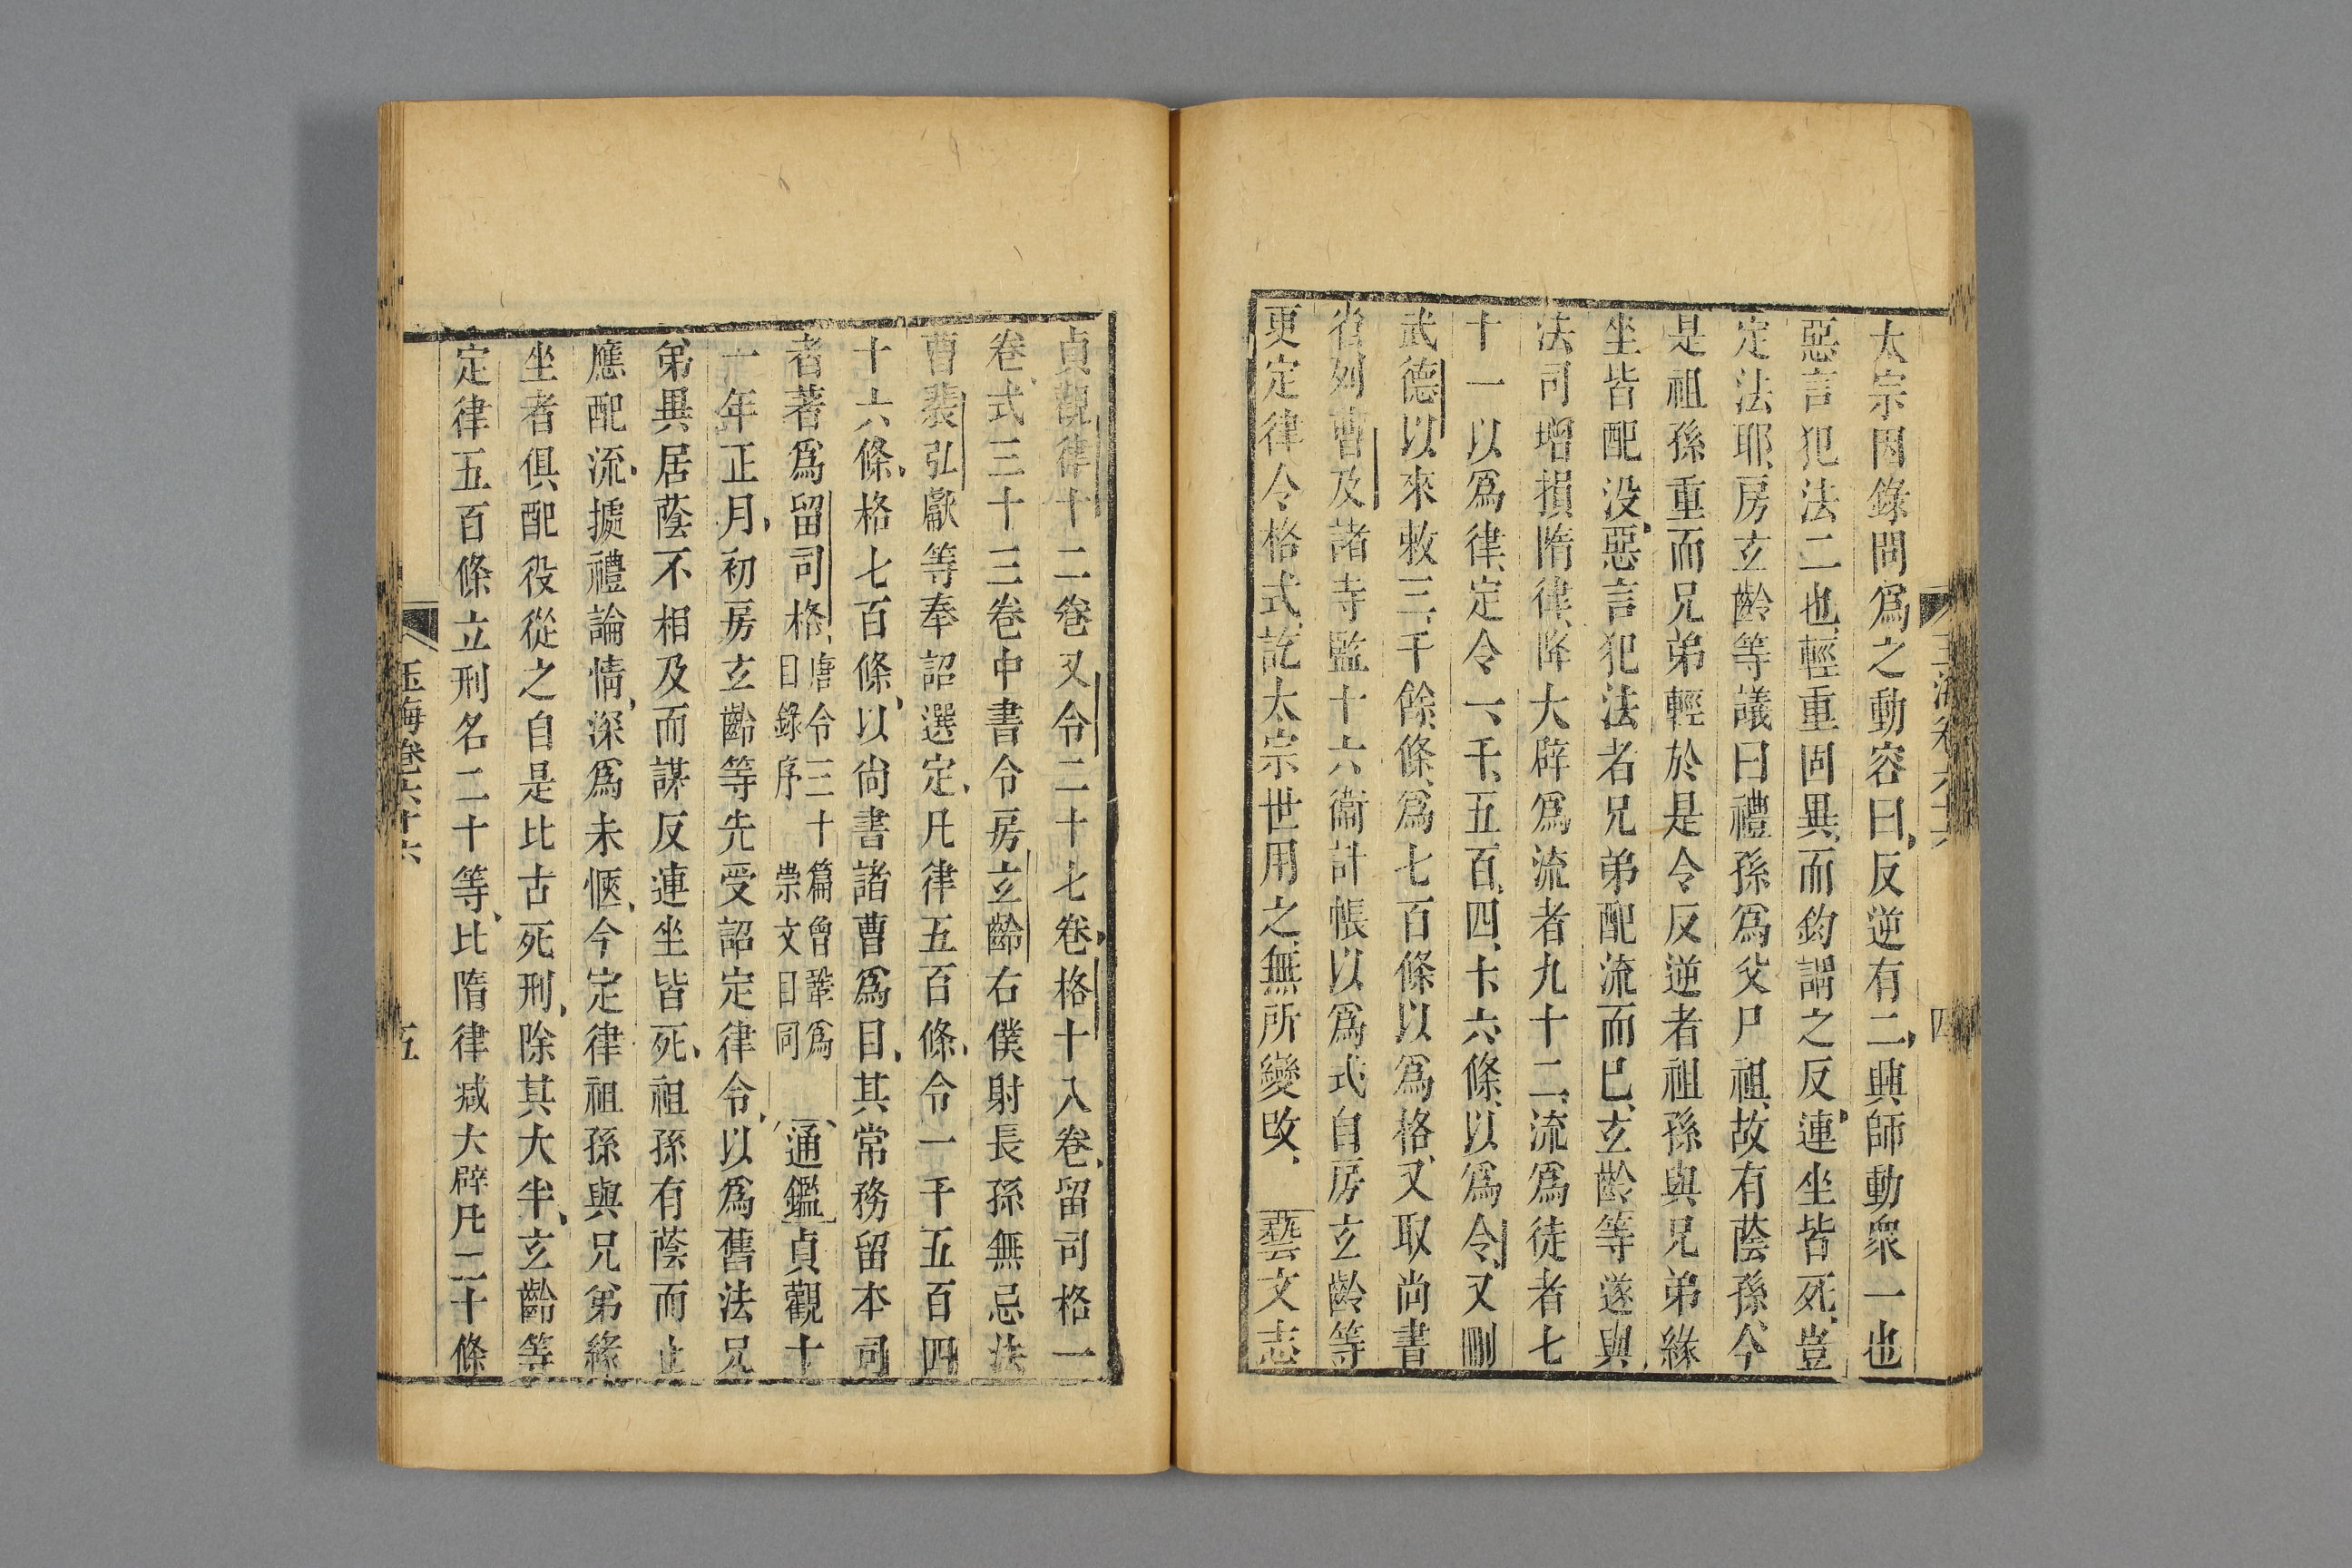 太宗因錄問爲之動容曰反逆有二興師動衆一也
惡言犯法二也輕重固異而鈞謂之反連坐皆死豈
定法耶房玄齡等議曰禮孫爲父尸祖故有蔭孫令
是祖孫重而兄弟輕於是令反逆者祖孫與兄弟緣
坐皆配没惡言犯法者兄弟配流而已玄齡等遂與
法司增損隋律降大辟爲流者九十二流爲徒者七
十一以爲律定令一千五百四十六條以爲令又刪
武德以來敕三千餘條爲七百條以爲格又取尚書
省列曹及諸寺監十六衞計帳以爲式自房玄齡等
更定律令格式訖太宗世用之無所變改 藝文志
貞觀律十二卷又令二十七卷格十八卷留司格一
卷式三十三卷中書令房玄齡右僕射長孫無忌法
曹裴弘獻等奉詔選定凡律五百條令一千五百四
十六條格七百條以尚書諸曹爲目其常務留本司
者著爲留司格
唐令三十篇曾鞏爲
目錄序 崇文目同
通鑑貞觀十
一年正月初房玄齡等先受詔定律令以爲舊法兄
弟異居蔭不相及而謀反連坐皆死祖孫有蔭而止
應配流據禮論情深爲未愜今定律祖孫與兄弟緣
坐者俱配役從之自是比古死刑除其大半玄齡等
定律五百條立刑名二十等比隋律减大辟凡二十條
玉海卷六十六
五